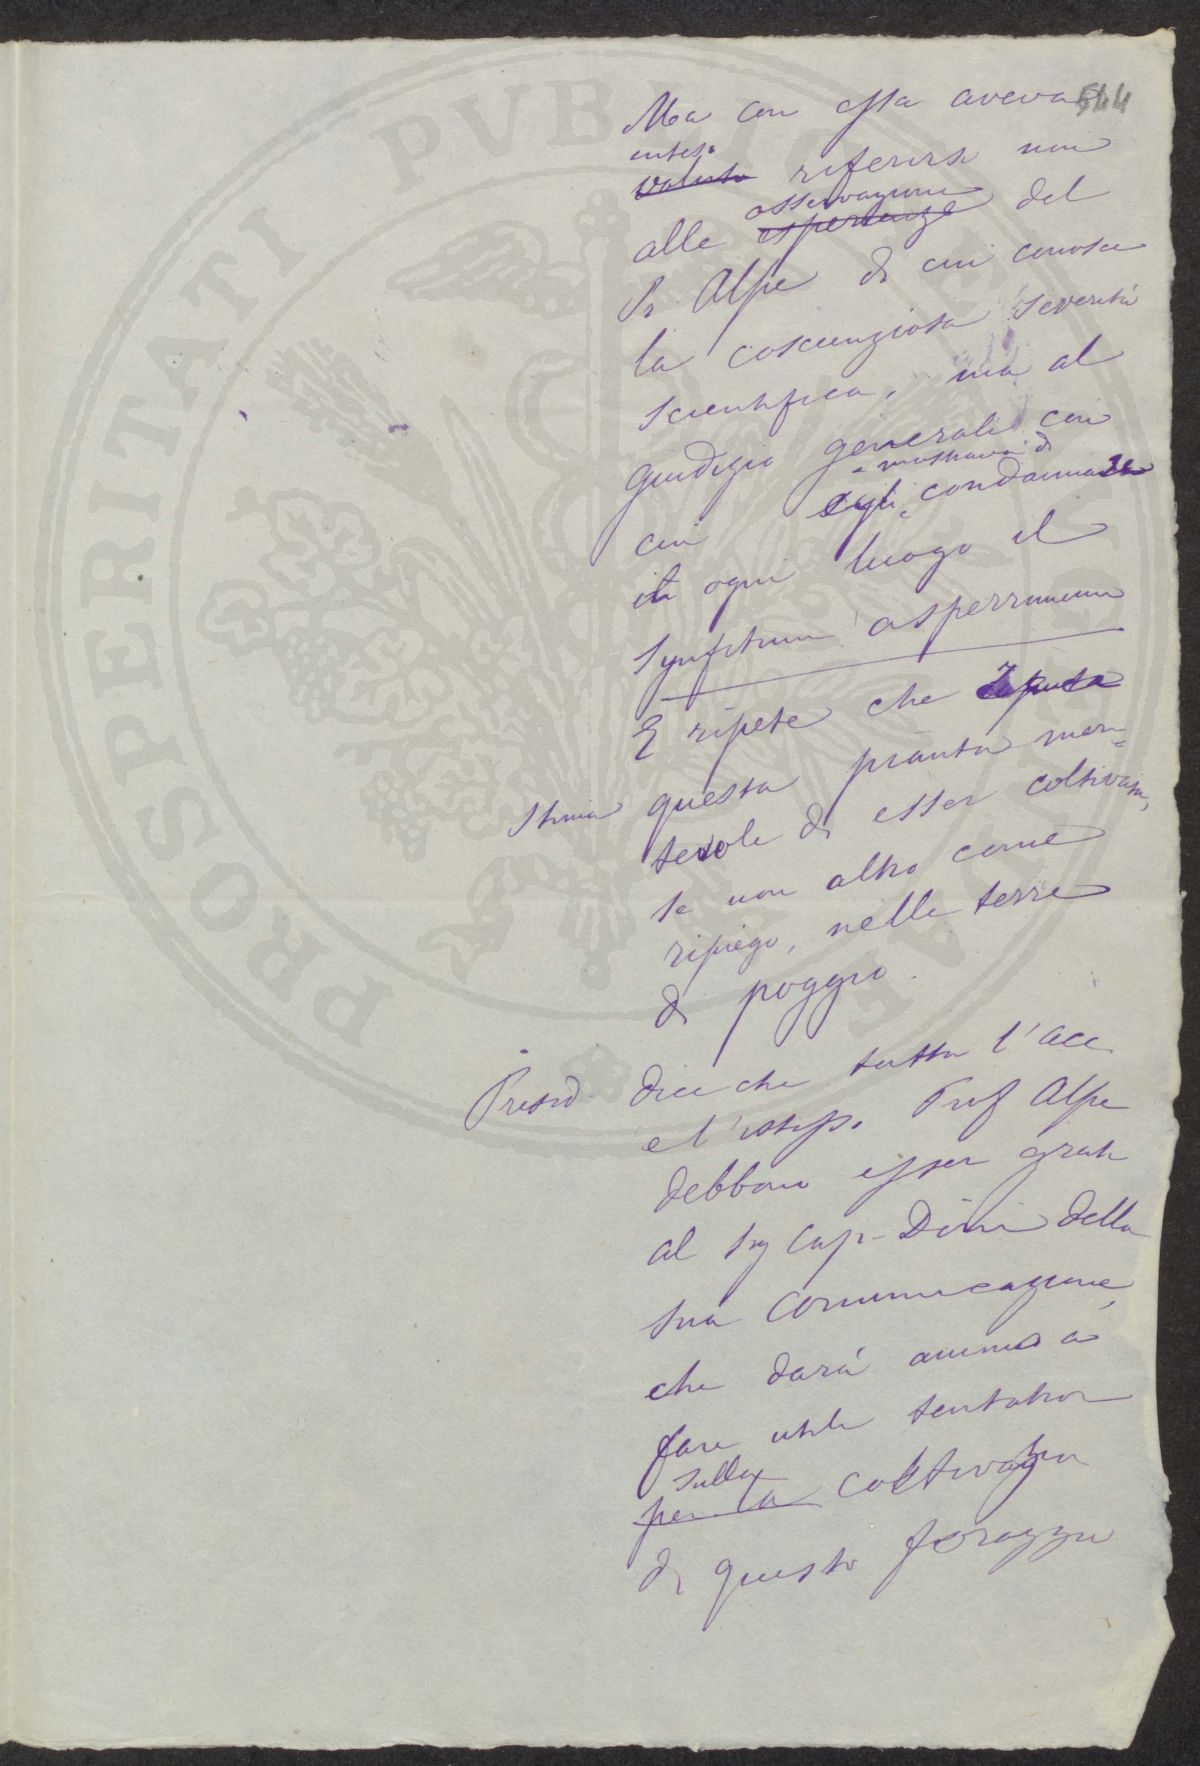 544
Ma con essa aveva
inteso
voluto riferirsi non
osservazioni
alle esperienze del
Pr. Alpe di cui conosce
la coscienziosa severità
scientifica, ma al
giudizio generale con
mostrava di
cui egli condannare
in ogni luogo il
Synfitum asperrimum
E ripete che reputa
Stima questa pianta meri=
tevole di esser coltivata,
se non altro come
ripiego, nelle terre
di poggio.
Presid. dice che tutta l'Acc
e l'istess. Prof Alpe
debbono esser grati
al Sig Cap. Dini della
sua comunicazione,
che darà animo a
fare utili tentativi
sulla
per la coltivazion
di questo foraggio
PROSPERITATI PVBLICAE AVGENDAE